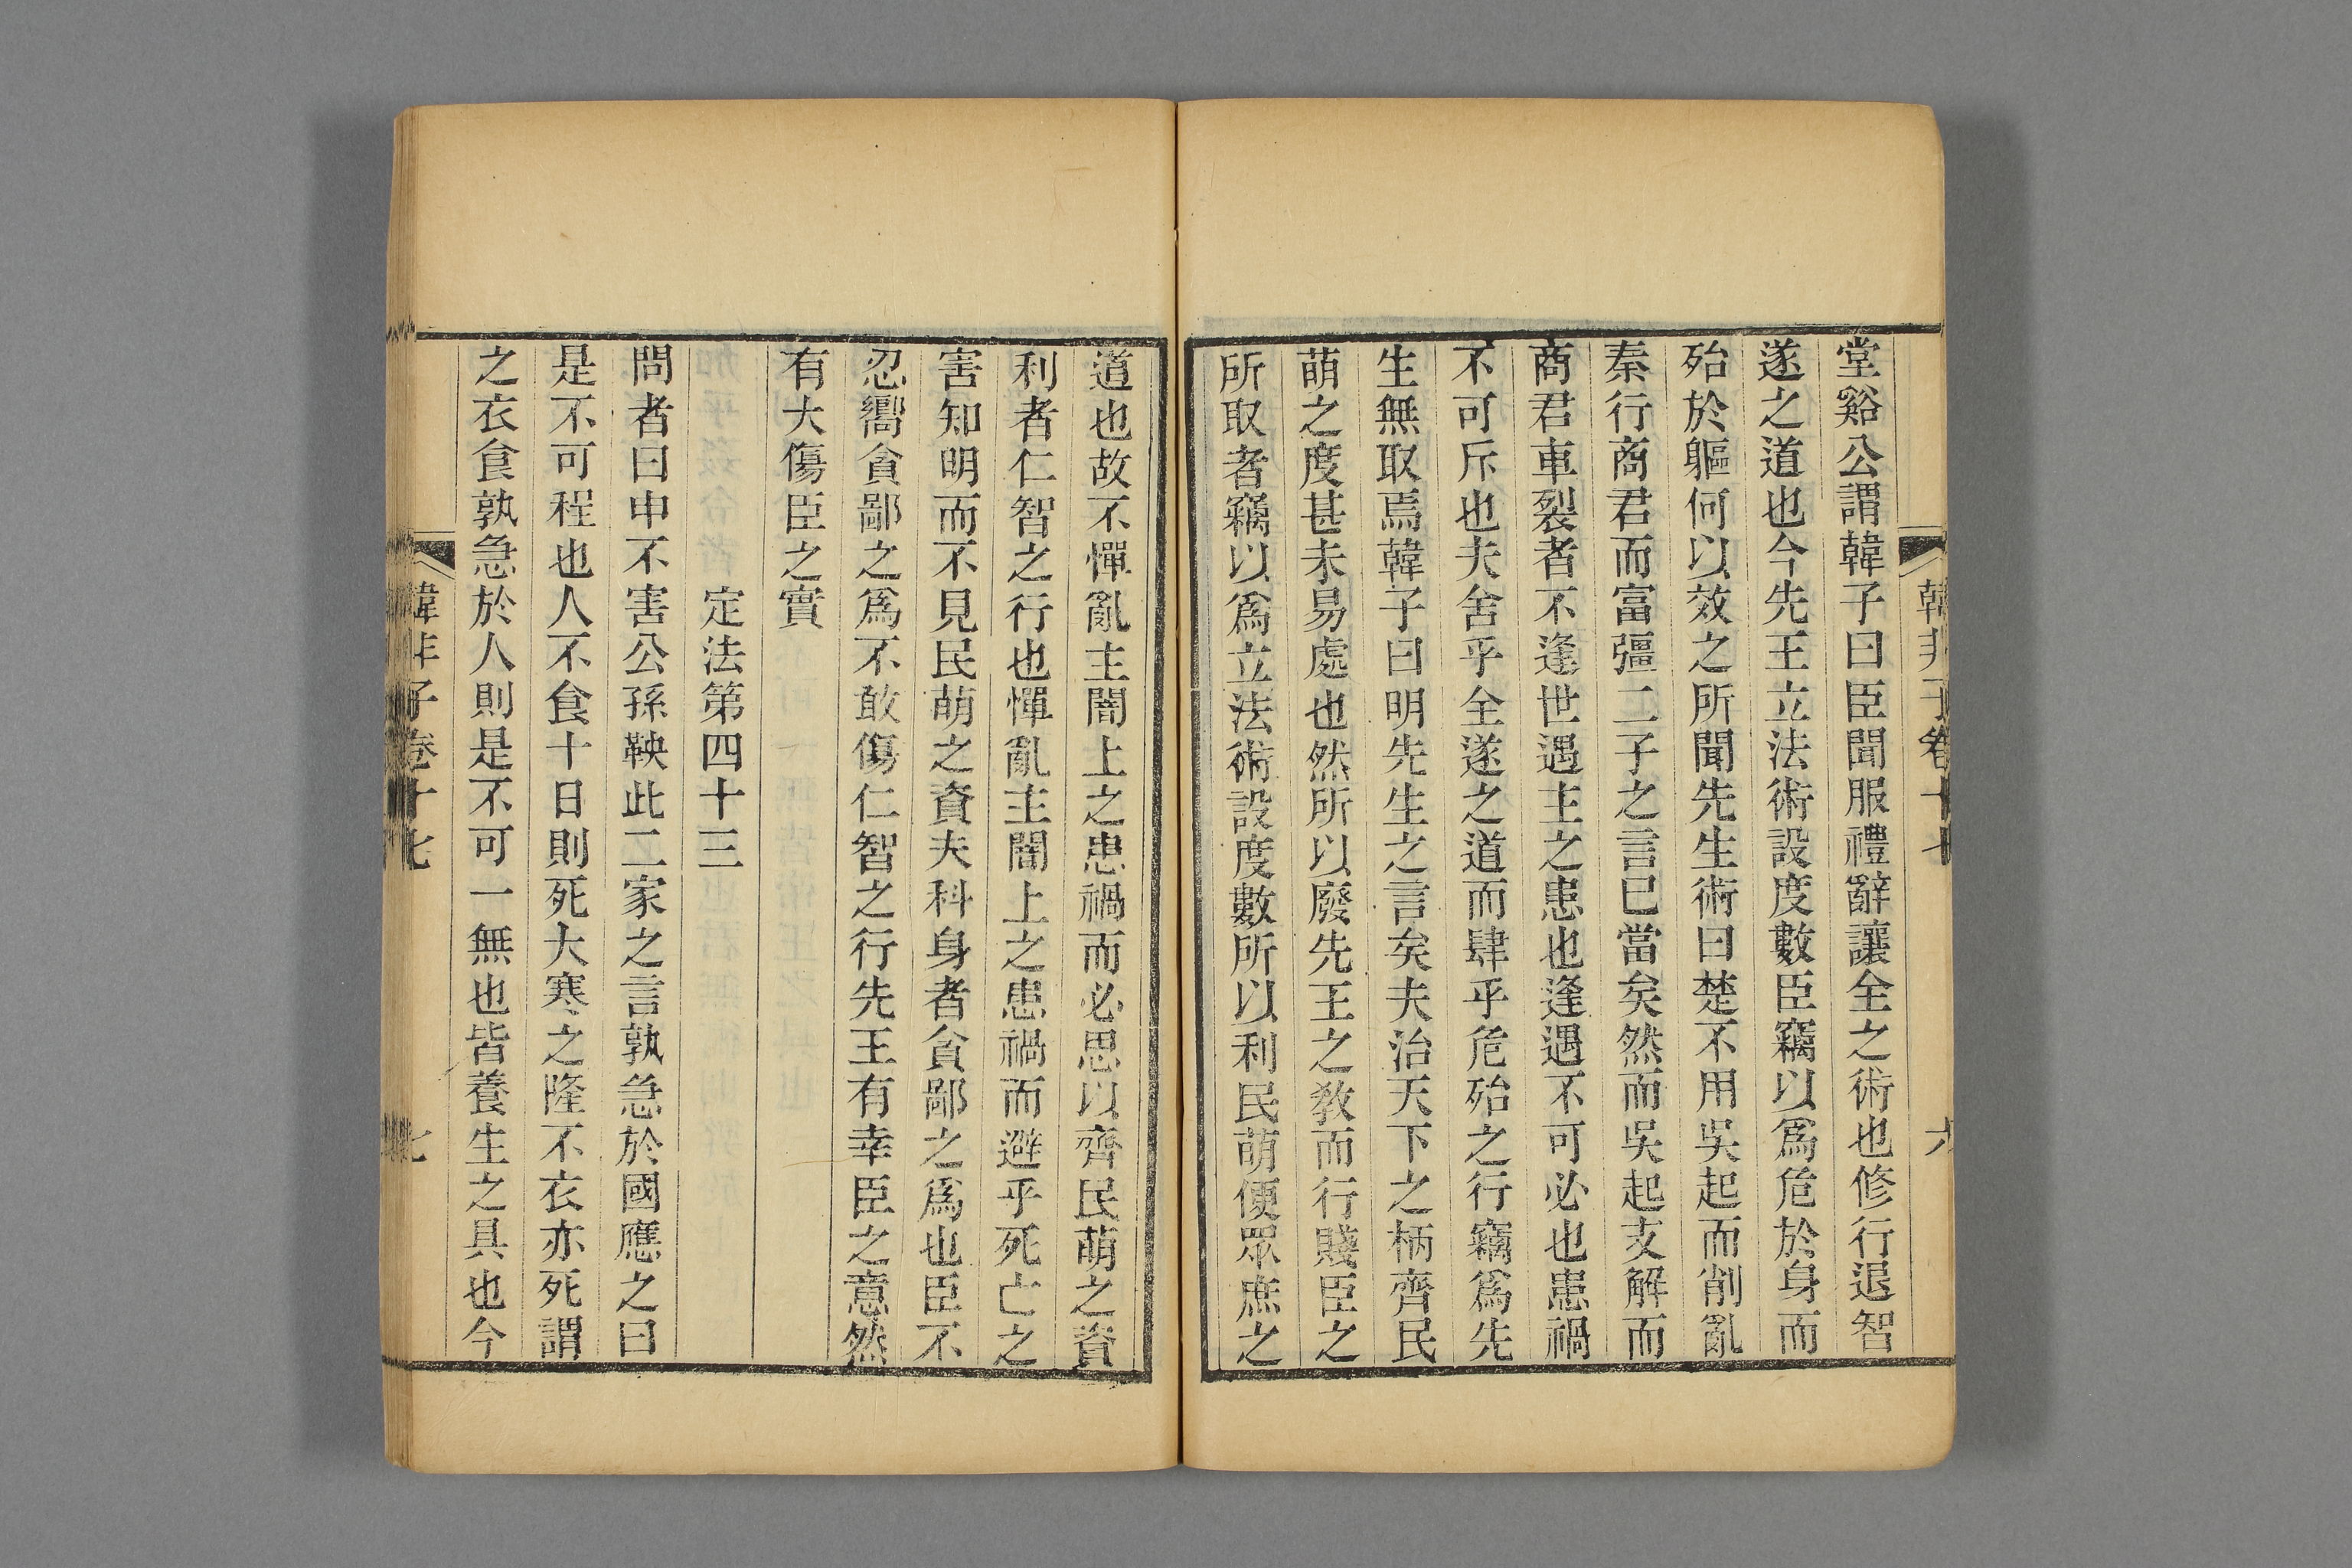 韓非子卷十七
六
堂谿公謂韓子曰臣聞服禮辭讓全之術也修行退智
遂之道也今先王立法術設度數臣竊以爲危於身而
殆於軀何以效之所聞先生術曰楚不用吳起而削亂
秦行商君而富彊二子之言已當矣然而吳起支解而
商君車裂者不逢世遇主之患也逢遇不可必也患禍
不可斥也夫舍乎全遂之道而肆乎危殆之行竊爲先
生無取焉韓子曰明先生之言矣夫治天下之柄齊民
萌之度甚未易處也然所以廢先王之敎而行賤臣之
所取者竊以爲立法術設度數所以利民萌便眾庶之
道也故不憚亂主闇上之患禍而必思以齊民萌之資
利者仁智之行也憚亂主闇上之患禍而避乎死亡之
害知明而不見民萌之資夫科身者貪鄙之爲也臣不
忍嚮貪鄙之爲不敢傷仁智之行先王有幸臣之意然
有大傷臣之實
定法第四十三
問者曰申不害公孫鞅此二家之言孰急於國應之曰
是不可程也人不食十日則死大寒之隆不衣亦死謂
之衣食孰急於人則是不可一無也皆養生之具也今
韓非子卷十七
七